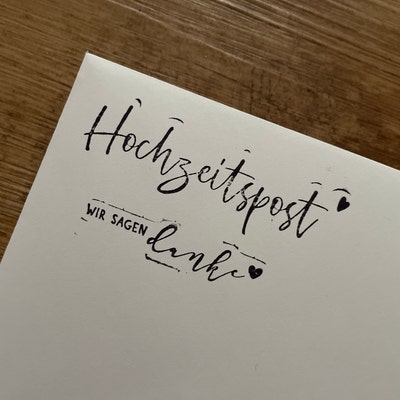 Hochzeitspost ♥
WIR SAGEN danke ♥